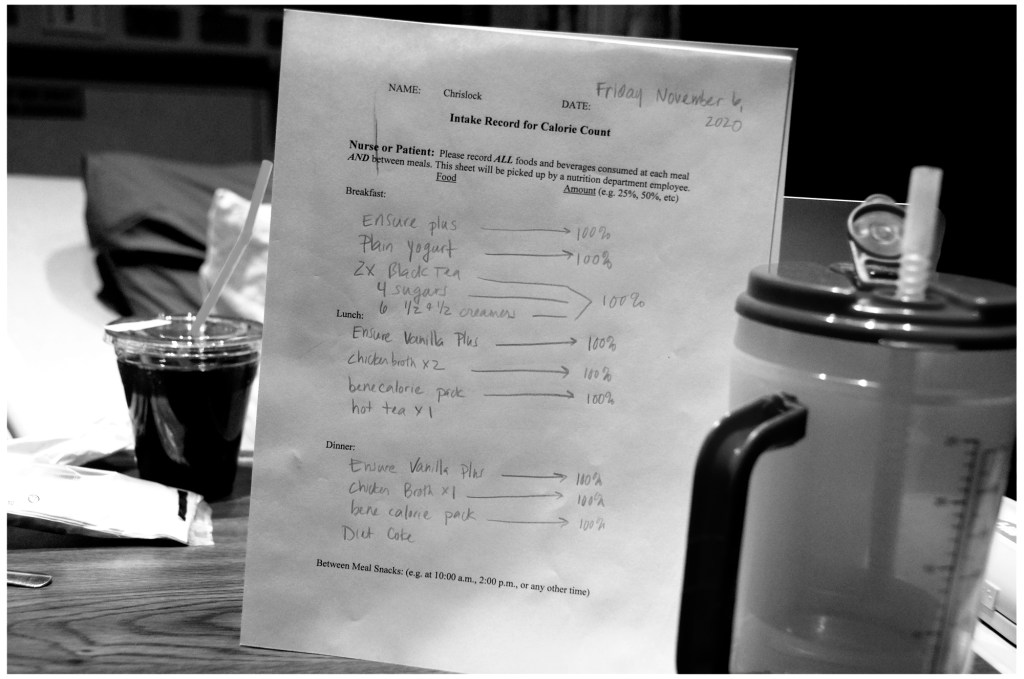 NAME: Chrislock DATE: Friday November 6,
2020
Intake Record for Calorie Count
Nurse or Patient: Please record ALL foods and beverages consumed at each meal
AND between meals. This sheet will be picked up by a nutrition department employee.
Food Amount (e.g. 25%, 50%, etc)
Breakfast:
Ensure plus 100%
Plain Yogurt 100%
2x Black Tea
4 sugars 100%
6 1/2 & 1/2 creamers
Lunch:
Ensure Vanilla Plus 100%
chicken broth x2 100%
benecalorie pack 100%
hot tea x1
Dinner:
Ensure Vanilla Plus 100%
Chicken Broth x1 100%
bene calorie pack 100%
Diet Coke
Between Meal Snacks: (e.g. at 10:00 a.m., 2:00 p.m., or any other time)